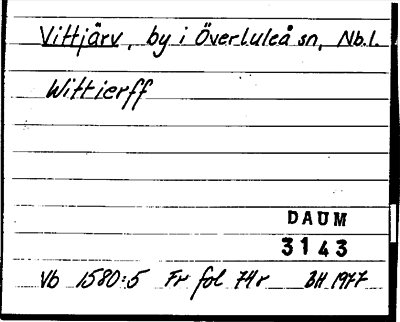 Vittjärv, by i Överluleå sn, Nb.l.
Wittierff
DAUM
3143
Vb 1580:5 Fr fol 74r BH 1977